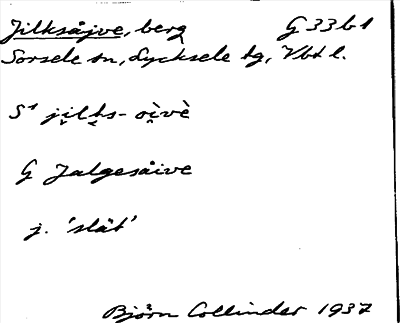 Jilksåjve, berg G 33 b 1
Sorsele sn, Lycksele tg, Vbt l.
S¹ ji̮lt̮s- oi̮vè
G Jalgesåive
j. 'slät'
Björn Collinder 1937